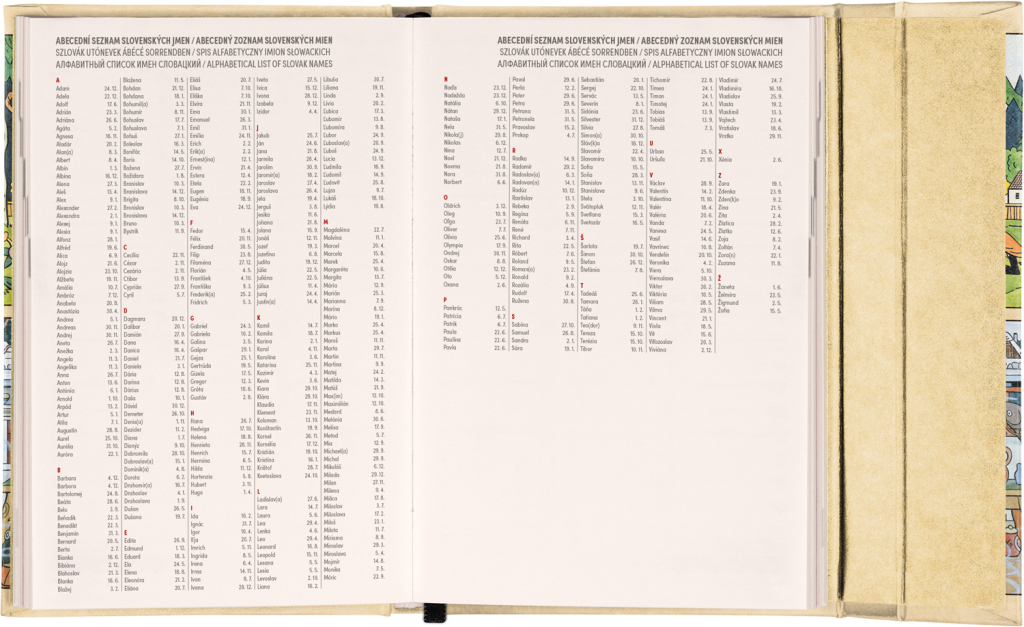 ABECEDNÍ SEZNAM SLOVENSKÝCH JMEN / ABECEDNÝ ZOZNAM SLOVENSKÝCH MIEN
SZLOVÁK UTÓNEVEK ÁBÉCÉ SORRENDBEN / SPIS ALFABETYCZNY IMION SŁOWACKICH
АЛФАВИТНЫЙ СПИСОК ИМЕН СЛОВАЦКИЙ / ALPHABETICAL LIST OF SLOVAK NAMES
A
Adam 24. 12.
Adela 22. 12.
Adolf 17. 6.
Adrián 23. 3.
Adriána 26. 6.
Agáta 5. 2.
Agnesa 16. 11.
Aladár 20. 2.
Alan(a) 8. 3.
Albert 8. 4.
Albín 1. 3.
Albína 16. 12.
Alena 27. 3.
Aleš 13. 4.
Alex 9. 1.
Alexander 27. 2.
Alexandra 2. 1.
Alexej 9. 1.
Alexia 9. 1.
Alfonz 28. 1.
Alfréd 19. 6.
Alica 6. 9.
Alojz 21. 6.
Alojzia 23. 10.
Alžbeta 19. 11.
Amália 10. 7.
Ambróz 7. 12.
Anabela 20. 8.
Anastázia 30. 4.
Andrea 5. 1.
Andreas 30. 11.
Andrej 30. 11.
Aneta 26. 7.
Anežka 2. 3.
Angela 11. 3.
Angelika 11. 3.
Anna 26. 7.
Anton 13. 6.
Antónia 6. 1.
Arnold 1. 10.
Arpád 13. 2.
Artur 5. 1.
Atila 7. 1.
Augustín 28. 8.
Aurel 25. 10.
Aurélia 21. 10.
Auróra 22. 1.
B
Barbara 4. 12.
Barbora 4. 12.
Bartolomej 24. 8.
Beáta 28. 6.
Bela 3. 9.
Beňadik 22. 3.
Benedikt 22. 3.
Benjamín 31. 3.
Bernard 20. 5.
Berta 2. 7.
Bianka 16. 6.
Bibiána 2. 12.
Blahoslav 21. 3.
Blanka 16. 6.
Blažej 3. 2.
Blažena 11. 5.
Bohdan 21. 12.
Bohdana 18. 1.
Bohumil(a) 3. 3.
Bohumír 8. 11.
Bohuslav 17. 7.
Bohuslava 7. 1.
Bohuš 27. 1.
Boleslav 16. 3.
Bonifác 14. 5.
Boris 14. 10.
Božena 27. 7.
Božidara 1. 8.
Branislav 10. 3.
Branislava 14. 12.
Brigita 8. 10.
Bronislav 10. 3.
Bronislava 14. 12.
Bruno 10. 3.
Bystrík 11. 9.
C
Cecília 22. 11.
Cézar 2. 11.
Cezária 2. 11.
Ctibor 13. 9.
Cyprián 27. 9.
Cyril 5. 7.
D
Dagmara 20. 12.
Dalibor 20. 1.
Damián 27. 9.
Dana 16. 4.
Danica 16. 4.
Daniel 21. 7.
Daniela 3. 1.
Dária 12. 8.
Darina 12. 8.
Dárius 12. 8.
Daša 10. 1.
Dávid 30. 12.
Demeter 26. 10.
Denis(a) 1. 11.
Dezider 11. 2.
Diana 1. 7.
Dionýz 9. 10.
Dobromila 28. 10.
Dobroslav(a) 15. 1.
Dominik(a) 4. 8.
Dorota 6. 2.
Drahomír(a) 16. 7.
Drahoslav 4. 1.
Drahoslava 1. 9.
Dušan 26. 5.
Dušana 19. 7.
E
Edita 26. 9.
Edmund 1. 12.
Eduard 18. 3.
Ela 24. 5.
Elena 18. 8.
Eleonóra 21. 2.
Eliána 20. 7.
Eliáš 20. 7.
Elisa 7. 10.
Eliška 7. 10.
Elvíra 21. 11.
Ema 30. 1.
Emanuel 26. 3.
Emil 31. 1.
Emília 24. 11.
Erich 2. 2.
Erik(a) 2. 2.
Ernest(ína) 12. 1.
Ervín 21. 4.
Estera 12. 4.
Etela 22. 2.
Eugen 18. 11.
Eugénia 18. 9.
Eva 24. 12.
F
Fedor 15. 4.
Félix 20. 11.
Ferdinand 30. 5.
Filip 23. 8.
Filoména 27. 12.
Florián 4. 5.
František 4. 10.
Františka 9. 3.
Frederik(a) 25. 2.
Fridrich 5. 3.
G
Gabriel 24. 3.
Gabriela 10. 2.
Galina 3. 5.
Gašpar 29. 1.
Gejza 25. 1.
Gertrúda 19. 5.
Gizela 17. 5.
Gregor 12. 3.
Gréta 10. 6.
Gustáv 2. 8.
H
Hana 26. 7.
Hedviga 17. 10.
Helena 18. 8.
Henrieta 28. 11.
Henrich 15. 7.
Hermína 6. 5.
Hilda 11. 12.
Hortenzia 5. 8.
Hubert 3. 11.
Hugo 1. 4.
I
Ida 16. 2.
Ignác 31. 7.
Igor 10. 4.
Iľja 20. 7.
Imrich 5. 11.
Ingrida 8. 5.
Irena 6. 4.
Irma 14. 11.
Ivan 8. 7.
Ivana 28. 12.
Iveta 27. 5.
Ivica 15. 12.
Ivona 28. 12.
Izabela 9. 12.
Izidor 4. 4.
J
Jakub 25. 7.
Ján 24. 6.
Jana 21. 8.
Jarmila 28. 4.
Jaroslav 30. 9.
Jaromír(a) 18. 2.
Jaroslav 27. 4.
Jaroslava 26. 4.
Jela 19. 4.
Jerguš 3. 8.
Jesika 11. 6.
Johana 21. 8.
Jolana 15. 9.
Jonáš 12. 11.
Jozef 19. 3.
Jozefína 6. 8.
Judita 19. 12.
Júlia 22. 5.
Juliána 22. 5.
Július 11. 4.
Juraj 24. 4.
Justín(a) 14. 4.
K
Kamil 14. 7.
Kamila 18. 7.
Karina 2. 1.
Karol 4. 11.
Karolína 3. 6.
Katarína 25. 11.
Kazimír 4. 3.
Kevin 3. 6.
Kiara 29. 10.
Klára 29. 10.
Klaudia 17. 11.
Klement 23. 11.
Koloman 13. 10.
Konštantín 19. 9.
Kornel 26. 11.
Kornélia 17. 12.
Kristián 19. 10.
Kristína 16. 1.
Krištof 28. 7.
Kvetoslava 24. 10.
L
Ladislav(a) 27. 6.
Lara 14. 7.
Laura 5. 6.
Lea 29. 4.
Lenka 4. 6.
Leo 29. 4.
Leonard 16. 8.
Leopold 15. 11.
Lesana 5. 5.
Lesia 5. 5.
Levoslav 2. 10.
Liana 16. 2.
Libuša 30. 7.
Liliana 19. 11.
Linda 2. 9.
Lívia 20. 2.
Ľubica 17. 3.
Ľubomír 13. 8.
Ľubomíra 9. 8.
Ľuboš 24. 9.
Ľuboslav(a) 20. 9.
Ľuboš 24. 9.
Lucia 13. 12.
Ľudmila 16. 9.
Ľudomil 14. 9.
Ľudovít 25. 8.
Lujza 9. 7.
Lukáš 18. 10.
Lýdia 10. 8.
M
Magdaléna 22. 7.
Malvína 11. 1.
Marcel 20. 4.
Marcela 15. 8.
Marek 25. 4.
Margaréta 10. 6.
Margita 13. 7.
Mária 12. 9.
Marián 25. 3.
Marianna 2. 9.
Marína 8. 12.
Mário 19. 1.
Marko 25. 4.
Markus 25. 4.
Maroš 11. 11.
Marta 29. 7.
Martin 11. 11.
Martina 9. 9.
Matej 24. 2.
Matilda 14. 3.
Matúš 21. 9.
Max(ín) 12. 10.
Maximilián 12. 10.
Medard 8. 6.
Melánia 30. 6.
Melisa 17. 9.
Metod 5. 7.
Mia 12. 9.
Michael(a) 29. 9.
Michal 29. 9.
Mikuláš 6. 12.
Milada 29. 12.
Milan 27. 11.
Milena 9. 4.
Milica 17. 8.
Miloslav 3. 7.
Miloslava 17. 2.
Miloš 23. 1.
Milota 11. 7.
Miriama 8. 9.
Miroslav 29. 3.
Miroslava 5. 4.
Mojmír 14. 8.
Monika 7. 5.
Móric 22. 9.
ABECEDNÍ SEZNAM SLOVENSKÝCH JMEN / ABECEDNÝ ZOZNAM SLOVENSKÝCH MIEN
SZLOVÁK UTÓNEVEK ÁBÉCÉ SORRENDBEN / SPIS ALFABETYCZNY IMION SŁOWACKICH
АЛФАВИТНЫЙ СПИСОК ИМЕН СЛОВАЦКИЙ / ALPHABETICAL LIST OF SLOVAK NAMES
N
Naďa 23. 12.
Nadežda 23. 12.
Natália 6. 10.
Nátan 29. 12.
Nataša 17. 1.
Nela 31. 5.
Nikola(j) 20. 8.
Nikolas 6. 12.
Nina 12. 7.
Noel 21. 12.
Noema 21. 8.
Nora 31. 8.
Norbert 6. 6.
O
Oldrich 3. 12.
Oleg 10. 9.
Oľga 23. 7.
Oliver 7. 7.
Olívia 25. 6.
Olympia 17. 9.
Ondrej 30. 11.
Oskar 8. 8.
Otília 12. 12.
Oto 5. 12.
Oxana 2. 6.
P
Pankrác 12. 5.
Patrícia 6. 7.
Patrik 6. 7.
Paula 22. 6.
Paulína 22. 6.
Pavla 22. 6.
Pavol 29. 6.
Perla 12. 2.
Peter 29. 6.
Petra 29. 6.
Petrana 31. 5.
Petronela 31. 5.
Pravoslav 15. 2.
Prokop 4. 7.
R
Radka 14. 9.
Radomír 29. 2.
Radoslav(a) 6. 3.
Radovan(a) 14. 1.
Radúz 10. 12.
Rastislav 13. 1.
Rebeka 2. 9.
Regina 5. 9.
Renáta 6. 11.
René 7. 11.
Richard 3. 4.
Rita 22. 5.
Róbert 7. 6.
Roland 9. 5.
Roman(a) 23. 2.
Ronald 9. 2.
Rozália 4. 9.
Rudolf 17. 4.
Ružena 30. 8.
S
Sabína 27. 10.
Samuel 26. 8.
Sandra 2. 1.
Sára 19. 1.
Sebastián 20. 1.
Sergej 22. 10.
Servác 13. 5.
Severín 8. 1.
Sidónia 23. 6.
Silvester 31. 12.
Silvia 27. 8.
Simon(a) 30. 10.
Sláv(k)a 18. 12.
Slavomír 22. 4.
Slavomíra 10. 10.
Sofia 15. 5.
Soňa 28. 3.
Stanislav 13. 11.
Stanislava 9. 6.
Stela 3. 10.
Svätopluk 12. 12.
Svetlana 15. 3.
Svetozár 16. 5.
Š
Šarlota 19. 7.
Šimon 30. 10.
Štefan 26. 12.
Štefánia 7. 8.
T
Tadeáš 25. 6.
Tamara 26. 1.
Táňa 1. 2.
Tatiana 1. 2.
Teo(dor) 9. 11.
Tereza 15. 10.
Terézia 15. 10.
Tibor 10. 11.
Tichomír 22. 8.
Timea 1. 9.
Timon 24. 1.
Timotej 24. 1.
Tobias 13. 9.
Tobiáš 13. 9.
Tomáš 7. 3.
U
Urban 25. 5.
Uršuľa 21. 10.
V
Václav 28. 9.
Valentín 14. 2.
Valentína 11. 10.
Valér 18. 4.
Valéria 20. 6.
Vanda 7. 2.
Vanesa 24. 5.
Vasil 14. 6.
Vavrinec 10. 8.
Vendelín 20. 10.
Veronika 4. 2.
Viera 5. 10.
Vieroslava 30. 3.
Viktor 26. 2.
Viktória 10. 5.
Viliam 28. 5.
Vilma 29. 5.
Vincent 21. 1.
Viola 18. 5.
Vít 15. 6.
Víťazoslav 20. 3.
Viviána 2. 12.
Vladimír 24. 7.
Vladimíra 16. 10.
Vladislav 25. 9.
Vlasta 19. 2.
Vlastimil 13. 3.
Vojtech 23. 4.
Vratislav 18. 6.
Vratko 29. 11.
X
Xénia 2. 6.
Z
Zara 19. 1.
Zdenka 23. 9.
Zden(k)o 9. 2.
Zina 21. 5.
Zita 2. 4.
Zlatica 28. 2.
Zlatko 12. 6.
Zoja 8. 2.
Zoltán 7. 4.
Zora(a) 22. 1.
Zuzana 11. 8.
Ž
Žaneta 1. 6.
Želmíra 23. 5.
Žigmund 2. 5.
Žofia 15. 5.